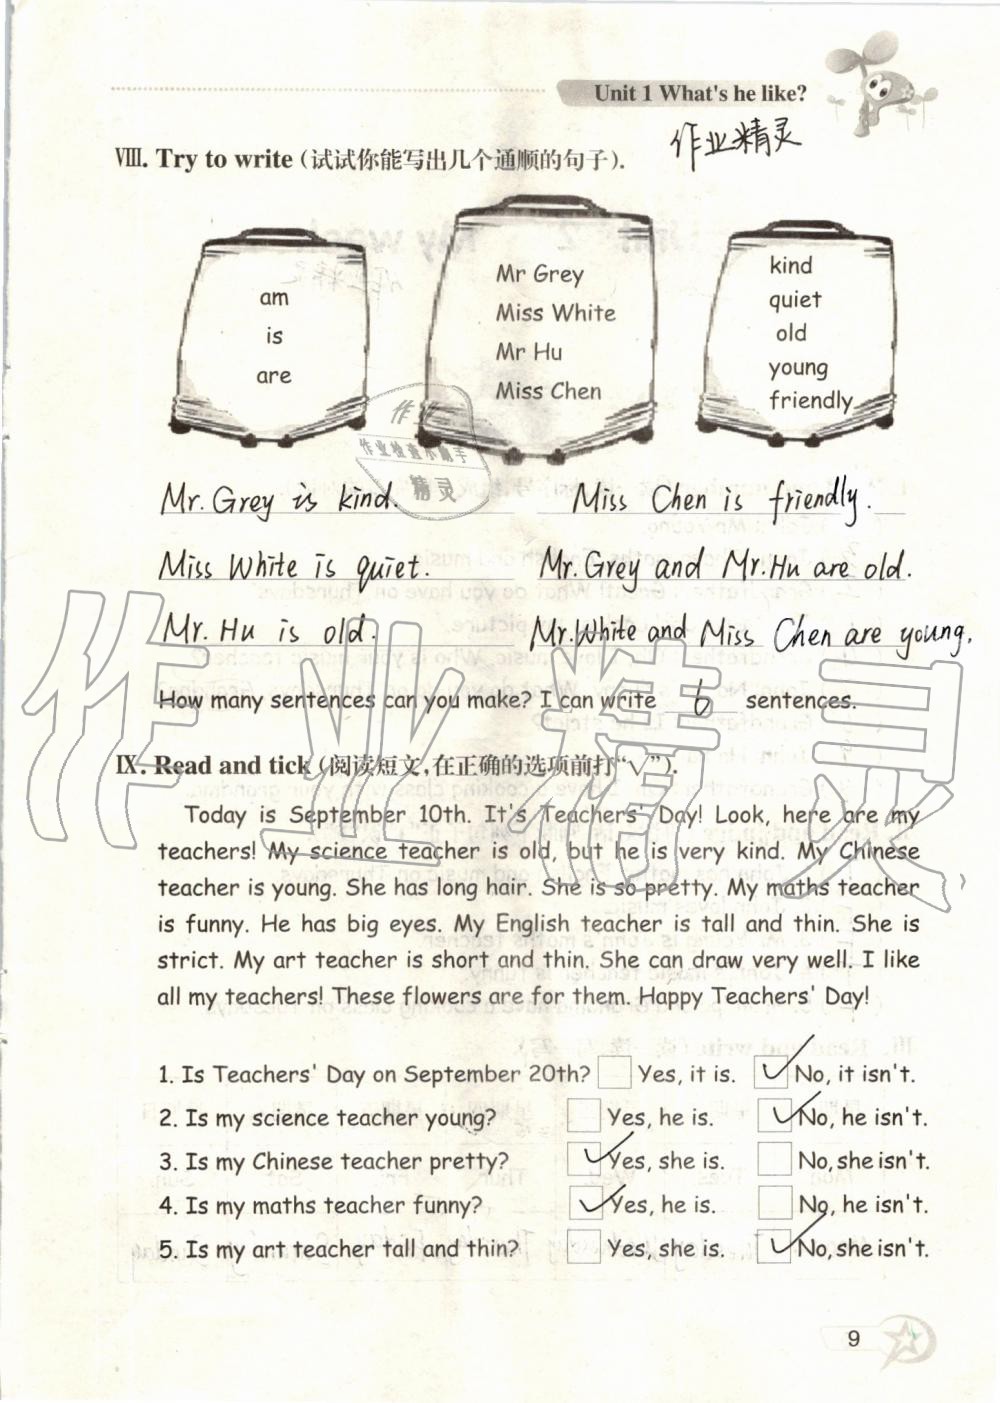 Unit 1 What's he like?
作业精灵
Ⅷ. Try to write (试试你能写出几个通顺的句子).
am
is
are
Mr Grey
Miss White
Mr Hu
Miss Chen
kind
quiet
old
young
friendly
作业检查小助手
精灵
Mr. Grey is kind. Miss Chen is friendly.
Miss White is quiet. Mr. Grey and Mr. Hu are old.
Mr. Hu is old. Mr. White and Miss Chen are young.
How many sentences can you make? I can write 6 sentences.
作业精灵
Ⅸ. Read and tick (阅读短文,在正确的选项前打“√”).
Today is September 10th. It's Teachers' Day! Look, here are my
teachers! My science teacher is old, but he is very kind. My Chinese
teacher is young. She has long hair. She is so pretty. My maths teacher
is funny. He has big eyes. My English teacher is tall and thin. She is
strict. My art teacher is short and thin. She can draw very well. I like
all my teachers! These flowers are for them. Happy Teachers' Day!
1. Is Teachers' Day on September 20th? Yes, it is. ✓ No, it isn't.
2. Is my science teacher young? Yes, he is. ✓ No, he isn't.
3. Is my Chinese teacher pretty? ✓ Yes, she is. No, she isn't.
4. Is my maths teacher funny? ✓ Yes, he is. No, he isn't.
5. Is my art teacher tall and thin? Yes, she is. ✓ No, she isn't.
9